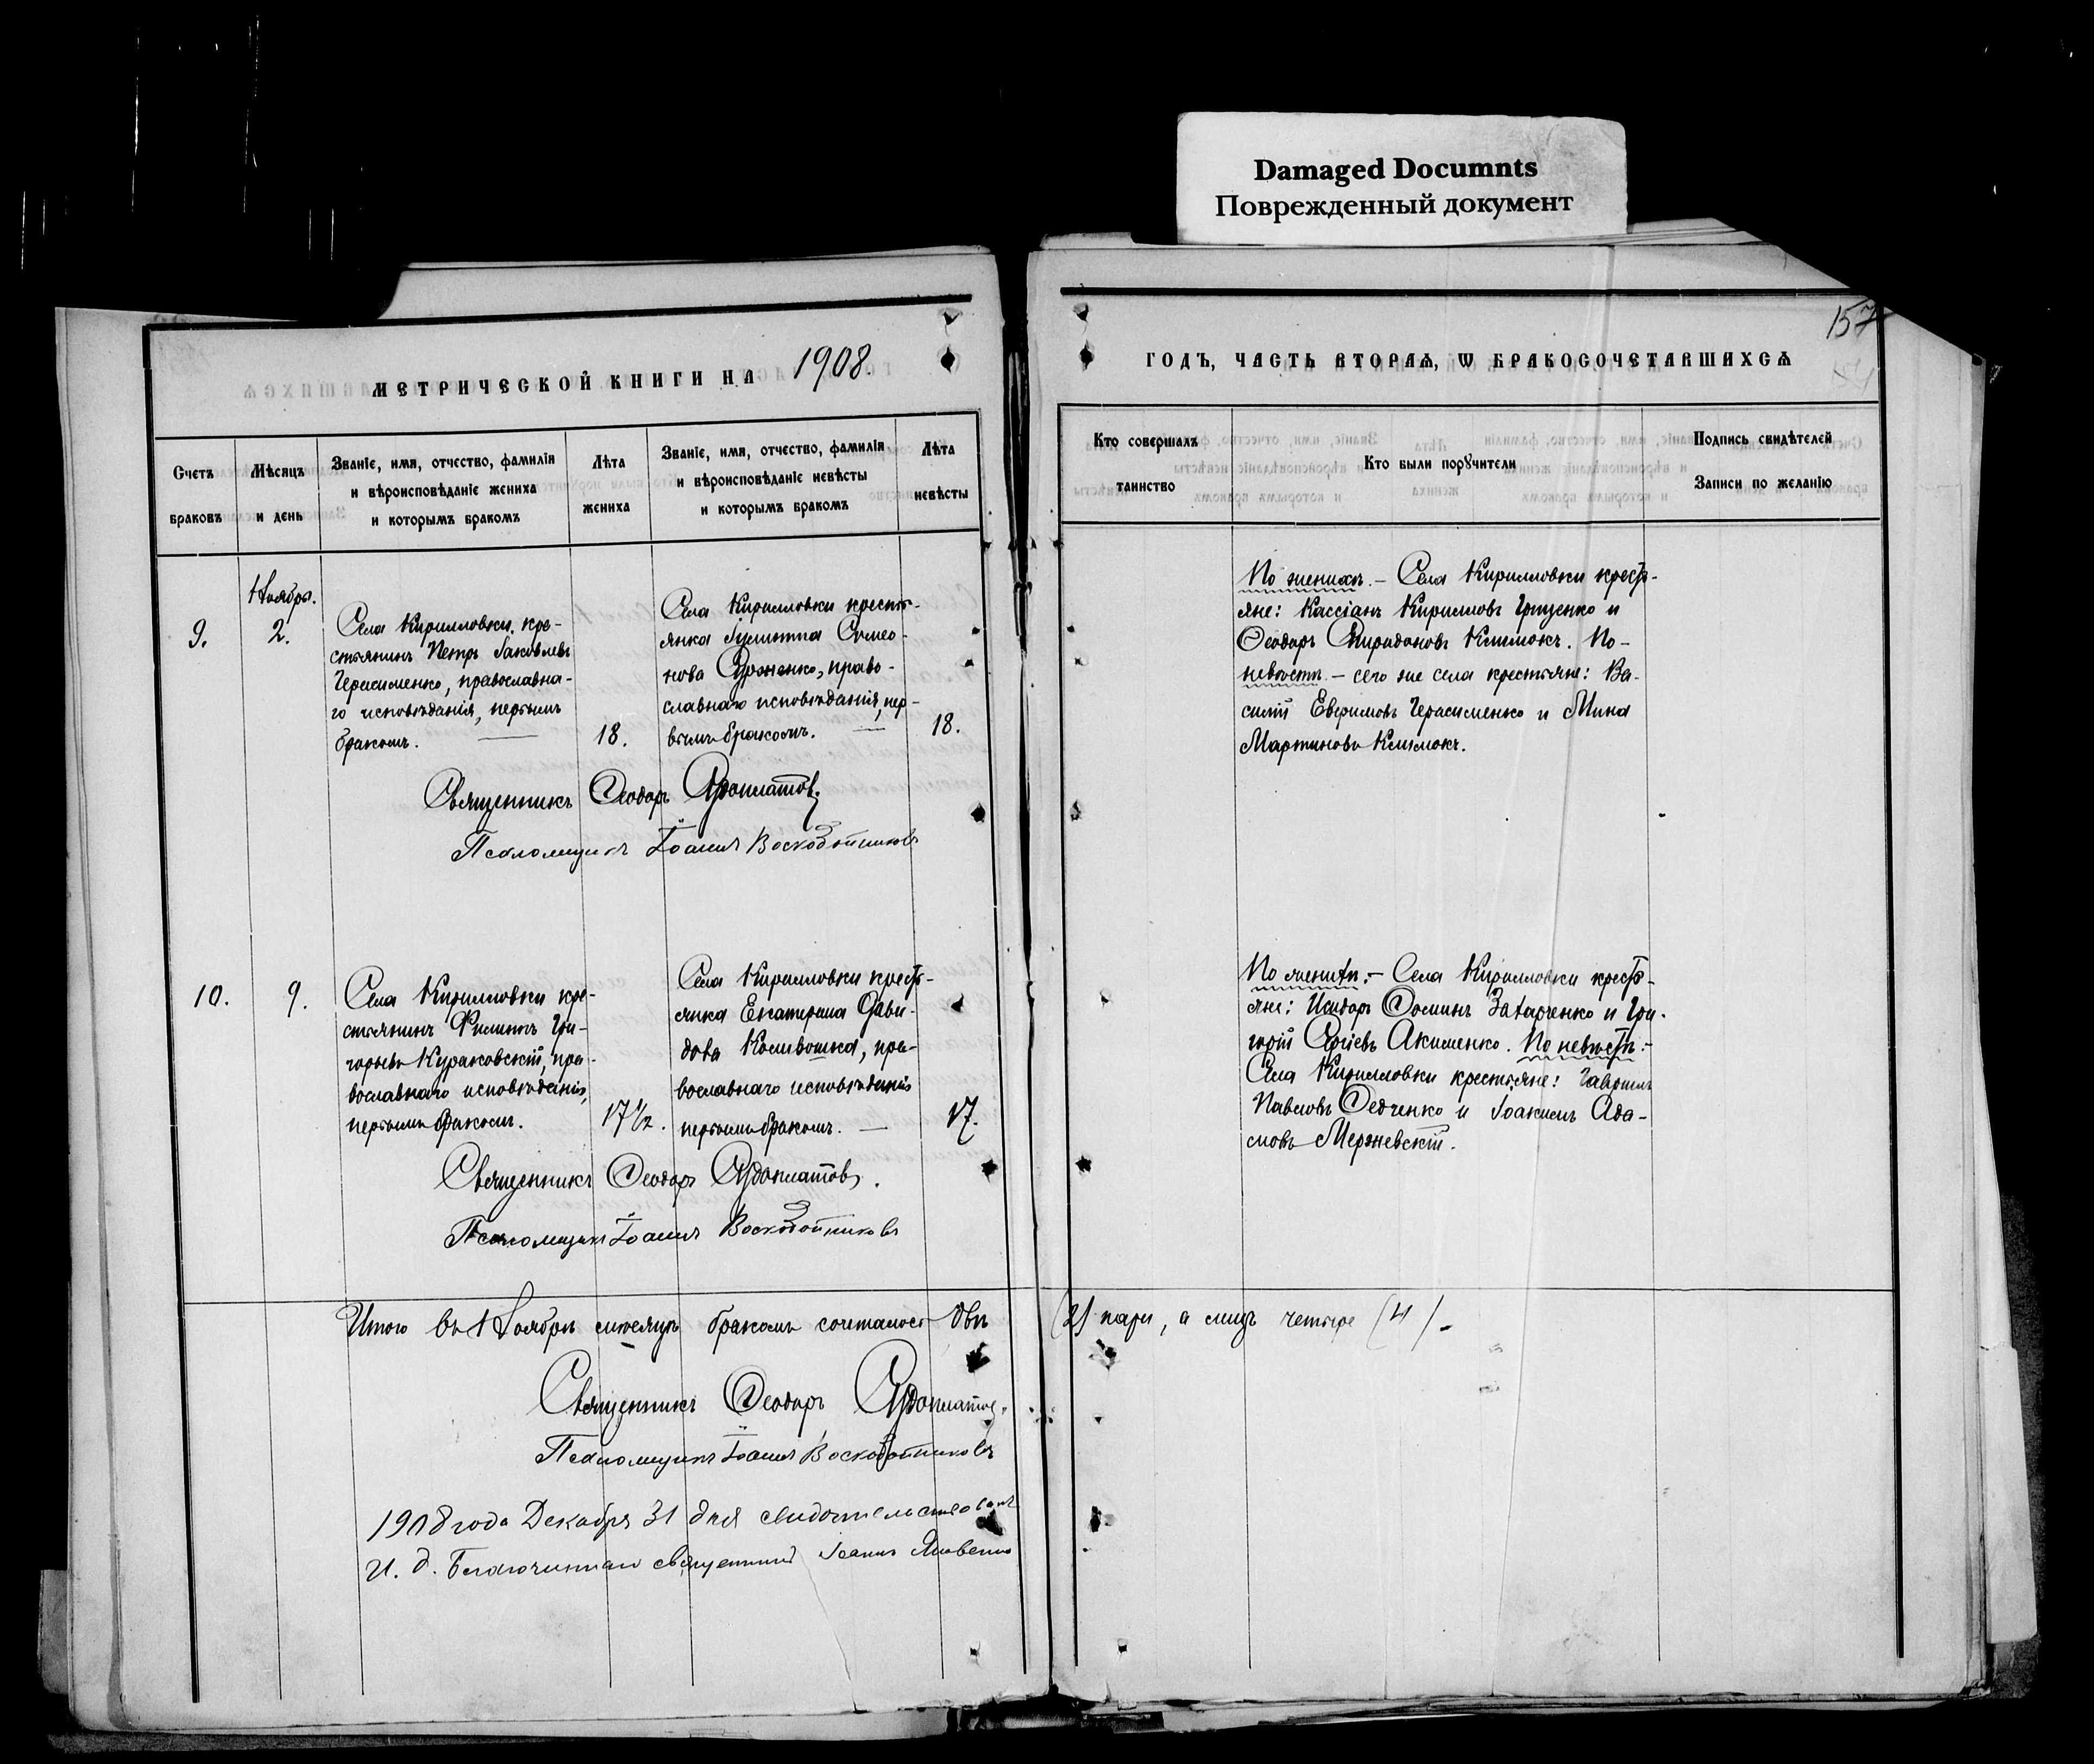 Damaged Documnts
Поврежденный документ
157
МЕТРИЧЕСКОЙ КНИГИ НА 1908.
ГОДЪ, ЧАСТЬ ВТОРАѦ, Ѡ БРАКОСОЧЕТАВШИХСѦ
Счетъ
браковъ
Мѣсяцъ
и день
Званіе, имя, отчество, фамилія
и вѣроисповѣданіе жениха
и которымъ бракомъ
Лѣта
жениха
Званіе, имя, отчество, фамилія
и вѣроисповѣданіе невѣсты
и которымъ бракомъ
Лѣта
невѣсты
Кто совершалъ
таинство
Кто были порꙋчители
Подпись свидѣтелей
Записи по желанію
Ноября.
9.
2.
Села Кирилловки кре-
стьянинъ Петръ Іаковлевъ
Герасименко, православна-
го исповѣданія, первымъ
бракомъ.
18.
Села Кирилловки кресть-
янка Іулитта Симео-
нова, право-
славнаго исповѣданія, пер-
вымъ бракомъ.
18.
По женихѣ. – Села Кирилловки кресть-
яне: Кассіанъ Кирилловъ Грищенко и
Ѳеодоръ Спиридоновъ Климокъ. По
невѣстѣ – сего же села крестьяне: Ва-
силій Евфимовъ Герасименко и Мина
Мартиновъ Климокъ.
Священникъ Ѳеодоръ
Псаломщикъ Іоаннъ Воскобойниковъ
10.
9.
Села Кирилловки кре-
стьянинъ Филиппъ Гри-
горьевъ Кураковскій, пра-
вославнаго исповѣданія,
первымъ бракомъ.
17½.
Села Кирилловки кресть-
янка Екатерина Дави-
дова, пра-
вославнаго исповѣданія
первымъ бракомъ.
17.
По женихѣ: – Села Кирилловки кресть-
яне: Исидоръ Ѳоминъ Захарченко и Гри-
горій Сергіевъ Акименко. По невѣстѣ: –
Села Кирилловки крестьяне: Гавриилъ
Павловъ Дедченко и Іоакимъ Ада-
мовъ Мержевскій.
Священникъ Ѳеодоръ
Псаломщикъ Іоаннъ Воскобойниковъ
Итого въ Ноябрѣ мѣсяцѣ бракомъ сочталось двѣ (2) пары, а лицъ четыре (4) –
Священникъ Ѳеодоръ
Псаломщикъ Іоаннъ Воскобойниковъ
1908 года Декабря 31 дня свидѣтельствовалъ
И. д. Благочиннаго священникъ Іоаннъ